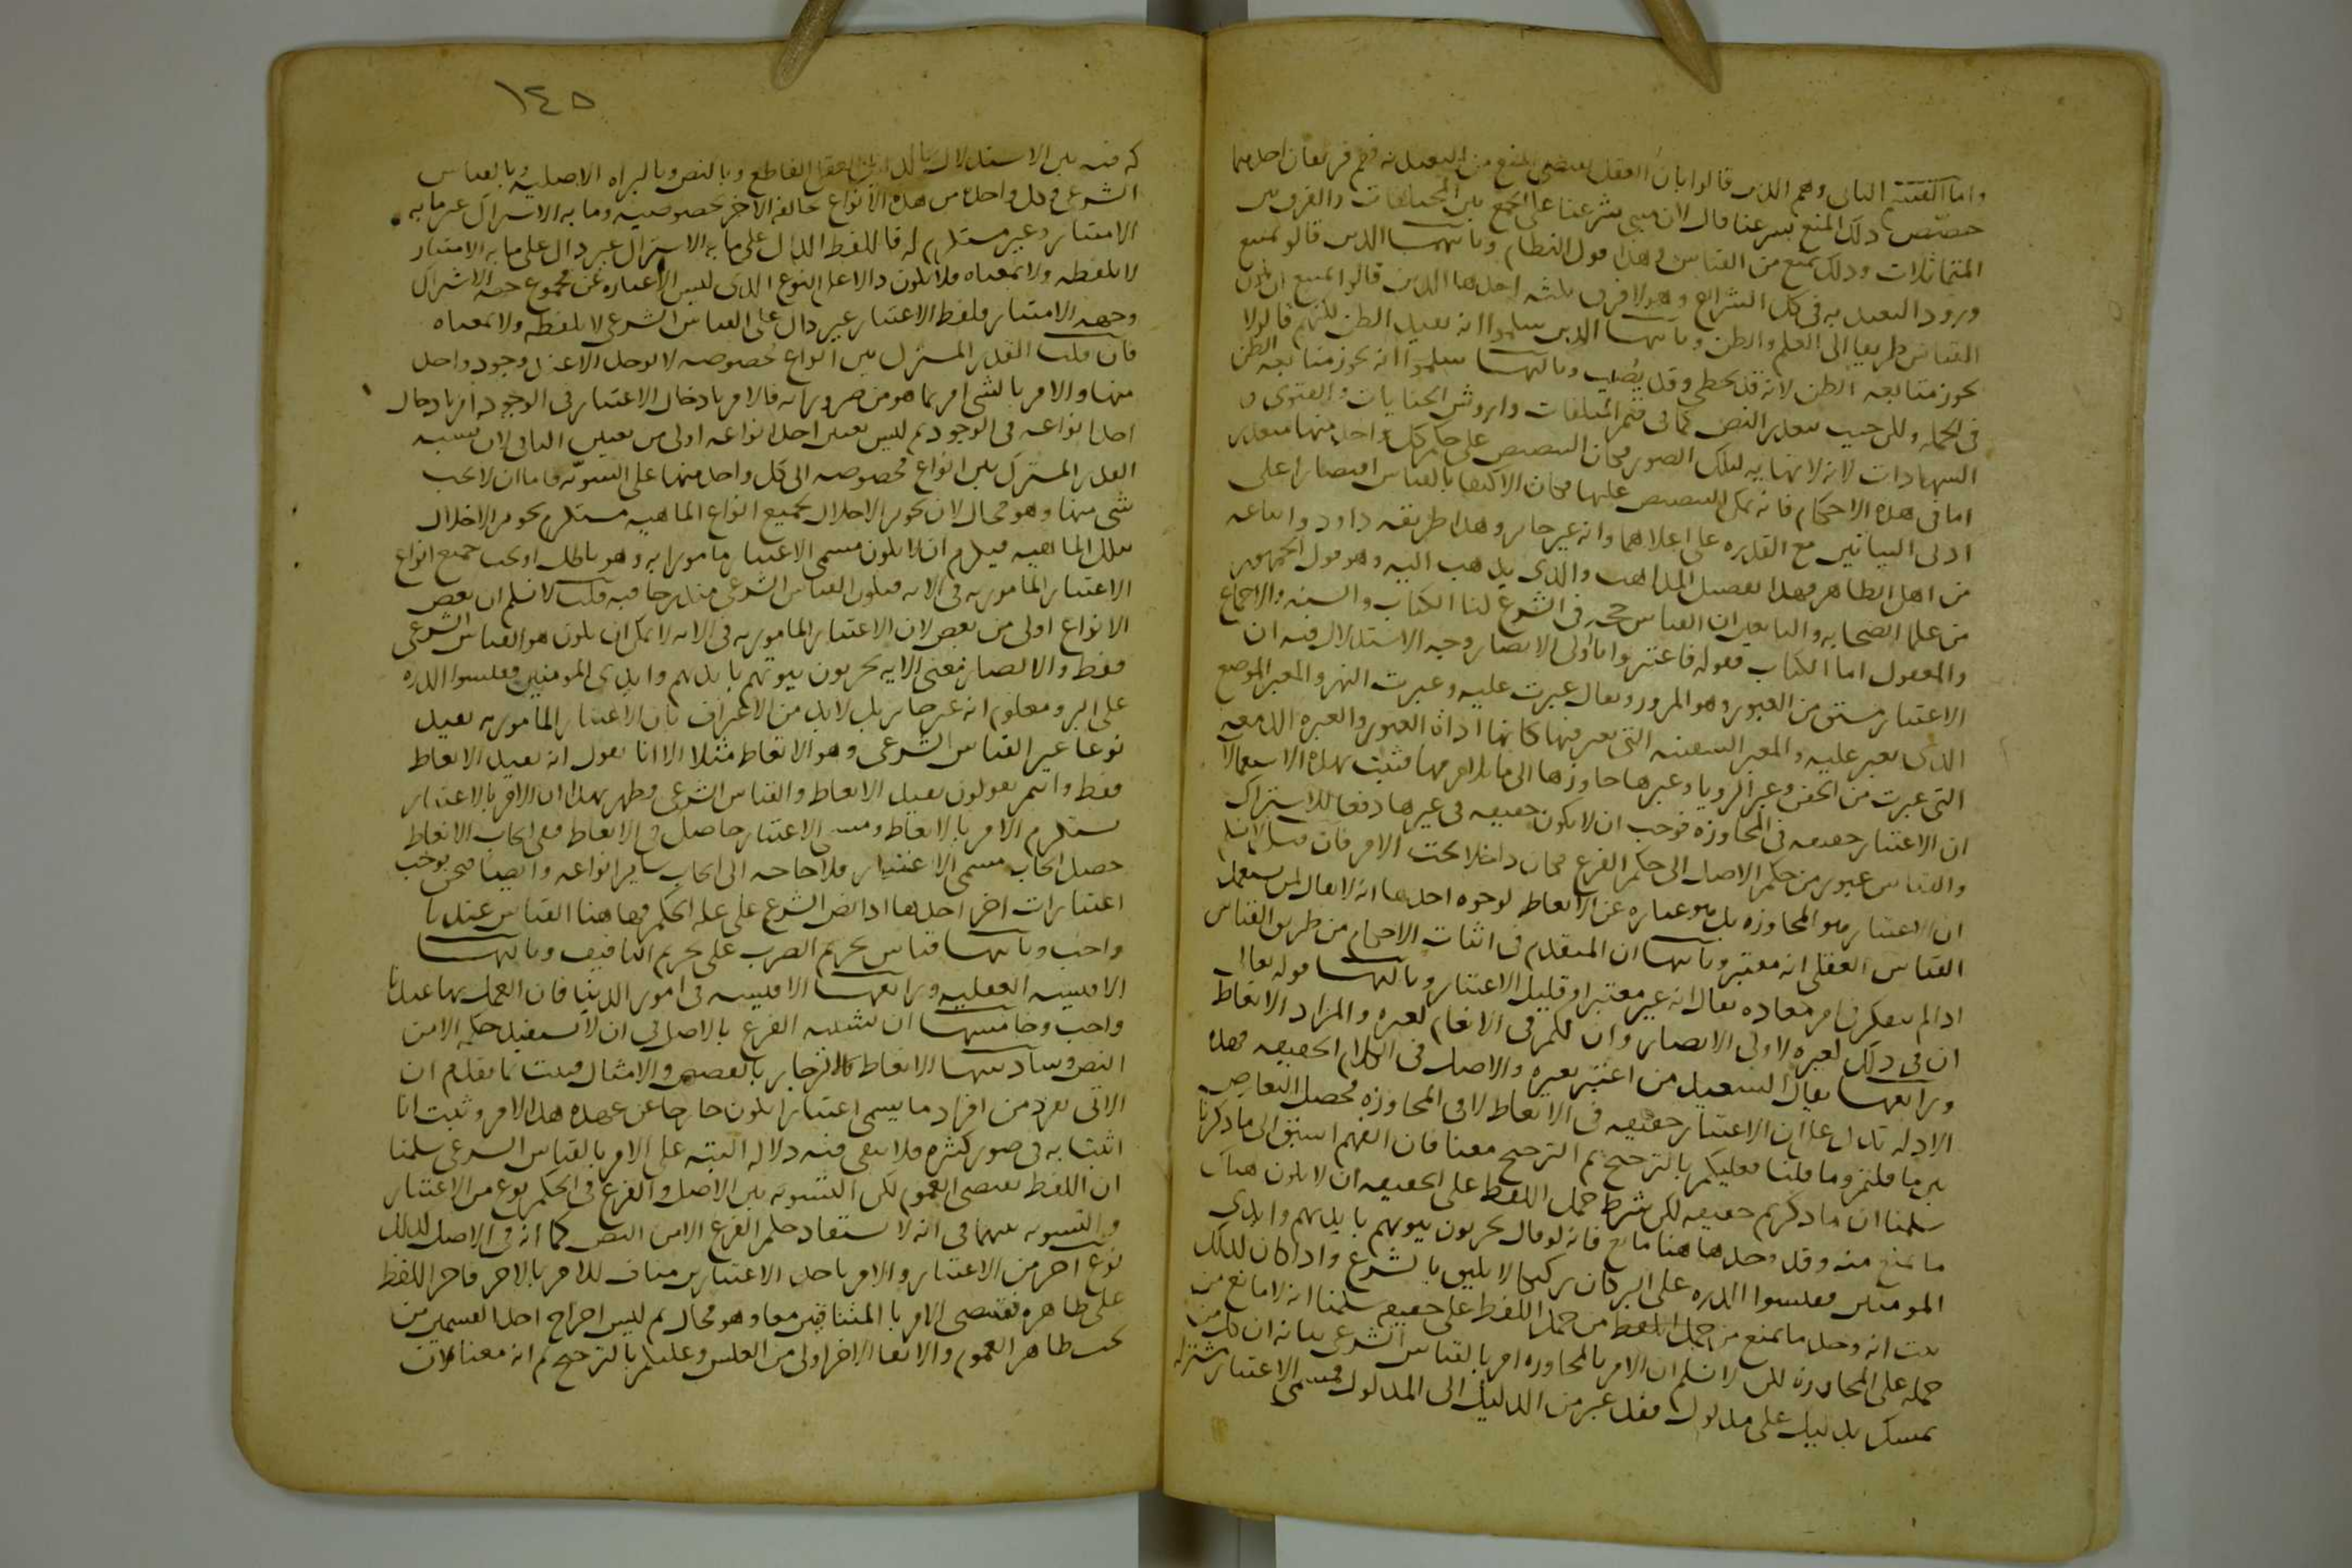 واما القسم الثانى وهم الذين قالوا بان العقل يقتضى المنع من التعبد به فهم فريقان احدهما
خصص ذلك المنع بشرعنا قال لان مبنى شرعنا على الجمع بين المختلفات والفرق بين
المتماثلات وذلك يمنع من القياس وهذا قول النظام وثانيهما الذين قالوا يمتنع
ورود التعبد به فى كل الشرائع وهولا فرق ثلثه احدها الذين قالوا يمتنع ان يكون
القياس طريقا الى العلم والظن وثانيها الذين سلموا انه يفيد الظن لكنهم قالوا لا
يجوز متابعه الظن لانه قد يخطى وقد يصيب وثالثها سلموا انه يجوز متابعه الظن
فى الجمله ولكن حيث يتعذر النص كما فى قيم المتلفات واروش الجنايات والفتوى و
الشهادات لانه لا نهايه لتلك الصور فكان التنصيص على حكم كل واحد منها متعذر
اما فى هذه الاحكام فانه يمكن التنصيص عليها فكان الاكتفا بالقياس اقتصارا على
ادنى البيانين مع القدره على اعلاهما وانه غير جائز وهذا طريقه داود واتباعه
من اهل الظاهر فهذا تفصيل المذاهب والذى يذهب اليه وهو قول الجمهور
من علما الصحابه والتابعين ان القياس حجه فى الشرع لنا الكتاب والسنه والاجماع
والمعقول اما الكتاب فقوله فاعتبروا يا اولى الابصار وجه الاستدلال فيه ان
الاعتبار مشتق من العبور وهو المرور ويقال عبرت عليه وعبرت النهر والمعبر الموضع
الذى يعبر عليه والمعبر السفينه التى يعبر فيها كانها اداه العبور والعبره الدمعه
التى عبرت من الجفن وعبر الرويا وعبرها جاوزها الى ما يلازمها فثبت بهذه الاستعمالا
ان الاعتبار حقيقه فى المجاوزه فوجب ان لا يكون حقيقه فى غيرها دفعا للاشتراك
والقياس عبور من حكم الاصل الى حكم الفرع فكان داخلا تحت الامر فان قيل لا نسلم
ان الاعتبار هو المجاوزه بل هو عباره عن الاتعاظ لوجوه احدها انه لا يقال لمن يستعمل
القياس العقلى انه معتبر وثانيها ان المتقدم فى اثبات الاحكام من طريق القياس
اذا لم يتفكر فى امر معاده يقال انه غير معتبر او قليل الاعتبار وثالثها قوله تعالى
ان فى ذلك لعبره لاولى الابصار وان لكم فى الانعام لعبره والمراد الاتعاظ
ورابعها يقال السعيد من اعتبر بغيره والاصل فى الكلام الحقيقه فهذه
الادله تدل على ان الاعتبار حقيقه فى الاتعاظ لا فى المجاوزه فحصل التعارض
بين ما قلتم وما قلنا فعليكم بالترجيح ثم الترجيح معنا فان الفهم اسبق الى ما ذكرنا
سلمنا ان ما ذكرتم حقيقه لكن شرط حمل اللفظ على الحقيقه ان لا يكون هناك
ما يمنع منه وقد وجد هاهنا مانع فانه لو قال يخربون بيوتهم بايديهم وايدى
المومنين فقيسوا الذره على البر كان ركيكا لا يليق بالشرع واذا كان كذلك
ثبت انه وجد ما يمنع من حمل اللفظ من حمل اللفظ على حقيقه سلمنا انه لا مانع من
حمله على المجاوزه لكن لا نسلم ان الامر بالمجاوزه امر بالقياس الشرعى بيانه ان كل من
تمسك بدليل على مدلول فقد عبر من الدليل الى المدلول فمسمى الاعتبار مشترك
١٤٥
كه فيه بين الاستدلال بالدليل العقلى القاطع وبالنص وبالبراه الاصليه وبالقياس
الشرعى وكل واحد من هذه الانواع يخالف الاخر بخصوصيته وما به الاشتراك غير ما به
الامتياز وغير مستلزم له فاللفظ الدال على ما به الاشتراك غير دال على ما به الامتياز
لا بلفظه ولا بمعناه فلا يكون دالا على النوع الذى ليس الا عباره عن مجموع جهه الاشتراك
وجهه الامتياز فلفظ الاعتبار غير دال على القياس الشرعى لا بلفظه ولا بمعناه
فان قلت القدر المشترك بين انواع مخصوصه لا يوجد الا عند وجود واحد
منها والامر بالشى امر بما هو من ضروراته فالامر بادخال الاعتبار فى الوجود امر بادخال
احد انواعه فى الوجود ثم ليس تعيين احد انواعه اولى من تعيين الباقى لان نسبه
القدر المشترك بين انواع مخصوصه الى كل واحد منها على السويه فاما ان لا يجب
شى منها وهو محال لان تجويز الاخلال بجميع انواع الماهيه مستلزم تجويز الاخلال
بتلك الماهيه فيلزم ان لا يكون مسمى الاعتبار مامورا به وهو باطل او يجب جميع انواع
الاعتبار المامور به فى الايه فيكون القياس الشرعى مندرجا فيه قلت لا نسلم ان بعض
الانواع اولى من بعض لان الاعتبار المامور به فى الايه لا يمكن ان يكون هو القياس الشرعى
فقط والا لصار معنى الايه يخربون بيوتهم بايديهم وايدى المومنين فقيسوا الذره
على البر ومعلوم انه غير جائز بل لا بد من الاعتراف بان الاعتبار المامور به يفيد
نوعا غير القياس الشرعى وهو الاتعاظ مثلا الا انا نقول انه يفيد الاتعاظ
فقط وانتم تقولون يفيد الاتعاظ والقياس الشرعى وظهر بهذا ان الامر بالاعتبار
يستلزم الامر بالاتعاظ ومسمى الاعتبار حاصل فى الاتعاظ ففى ايجاب الاتعاظ
حصل ايجاب مسمى الاعتبار فلا حاجه الى ايجاب سائر انواعه وايضا فنحن نوجب
اعتبارات اخر احدها اذا نص الشرع على عله الحكم فهاهنا القياس عندنا
واجب وثانيها قياس تحريم الضرب على تحريم التافيف وثالثها
الاقيسه العقليه ورابعها الاقيسه فى امور الدنيا فان العمل بها عندنا
واجب وخامسها ان نشبه الفرع بالاصل فى ان لا نستفيد حكمه الا من
النص وسادسها الاتعاظ والانزجار بالقصص والامثال فثبت بما تقدم ان
الاتى بفرد من افراد ما يسمى اعتبارا يكون خارجا عن عهده هذا الامر وثبت انا
اتينا به فى صور كثيره فلا يبقى فيه دلاله البته على الامر بالقياس الشرعى سلمنا
ان اللفظ يقتضى العموم لكن التسويه بين الاصل والفرع فى الحكم نوع من الاعتبار
والتسويه بينهما فى انه لا يستفاد حكم الفرع الا من النص كما انه فى الاصل كذلك
نوع اخر من الاعتبار والامر باحد الاعتبارين مناف للامر بالاخر فاجرا اللفظ
على ظاهره يقتضى الامر بالمتنافيين معا وهو محال ثم ليس اخراج احد القسمين من
تحت ظاهر العموم والابقا الاخر اولى من العكس وعليكم بالترجيح ثم انه معنا لان